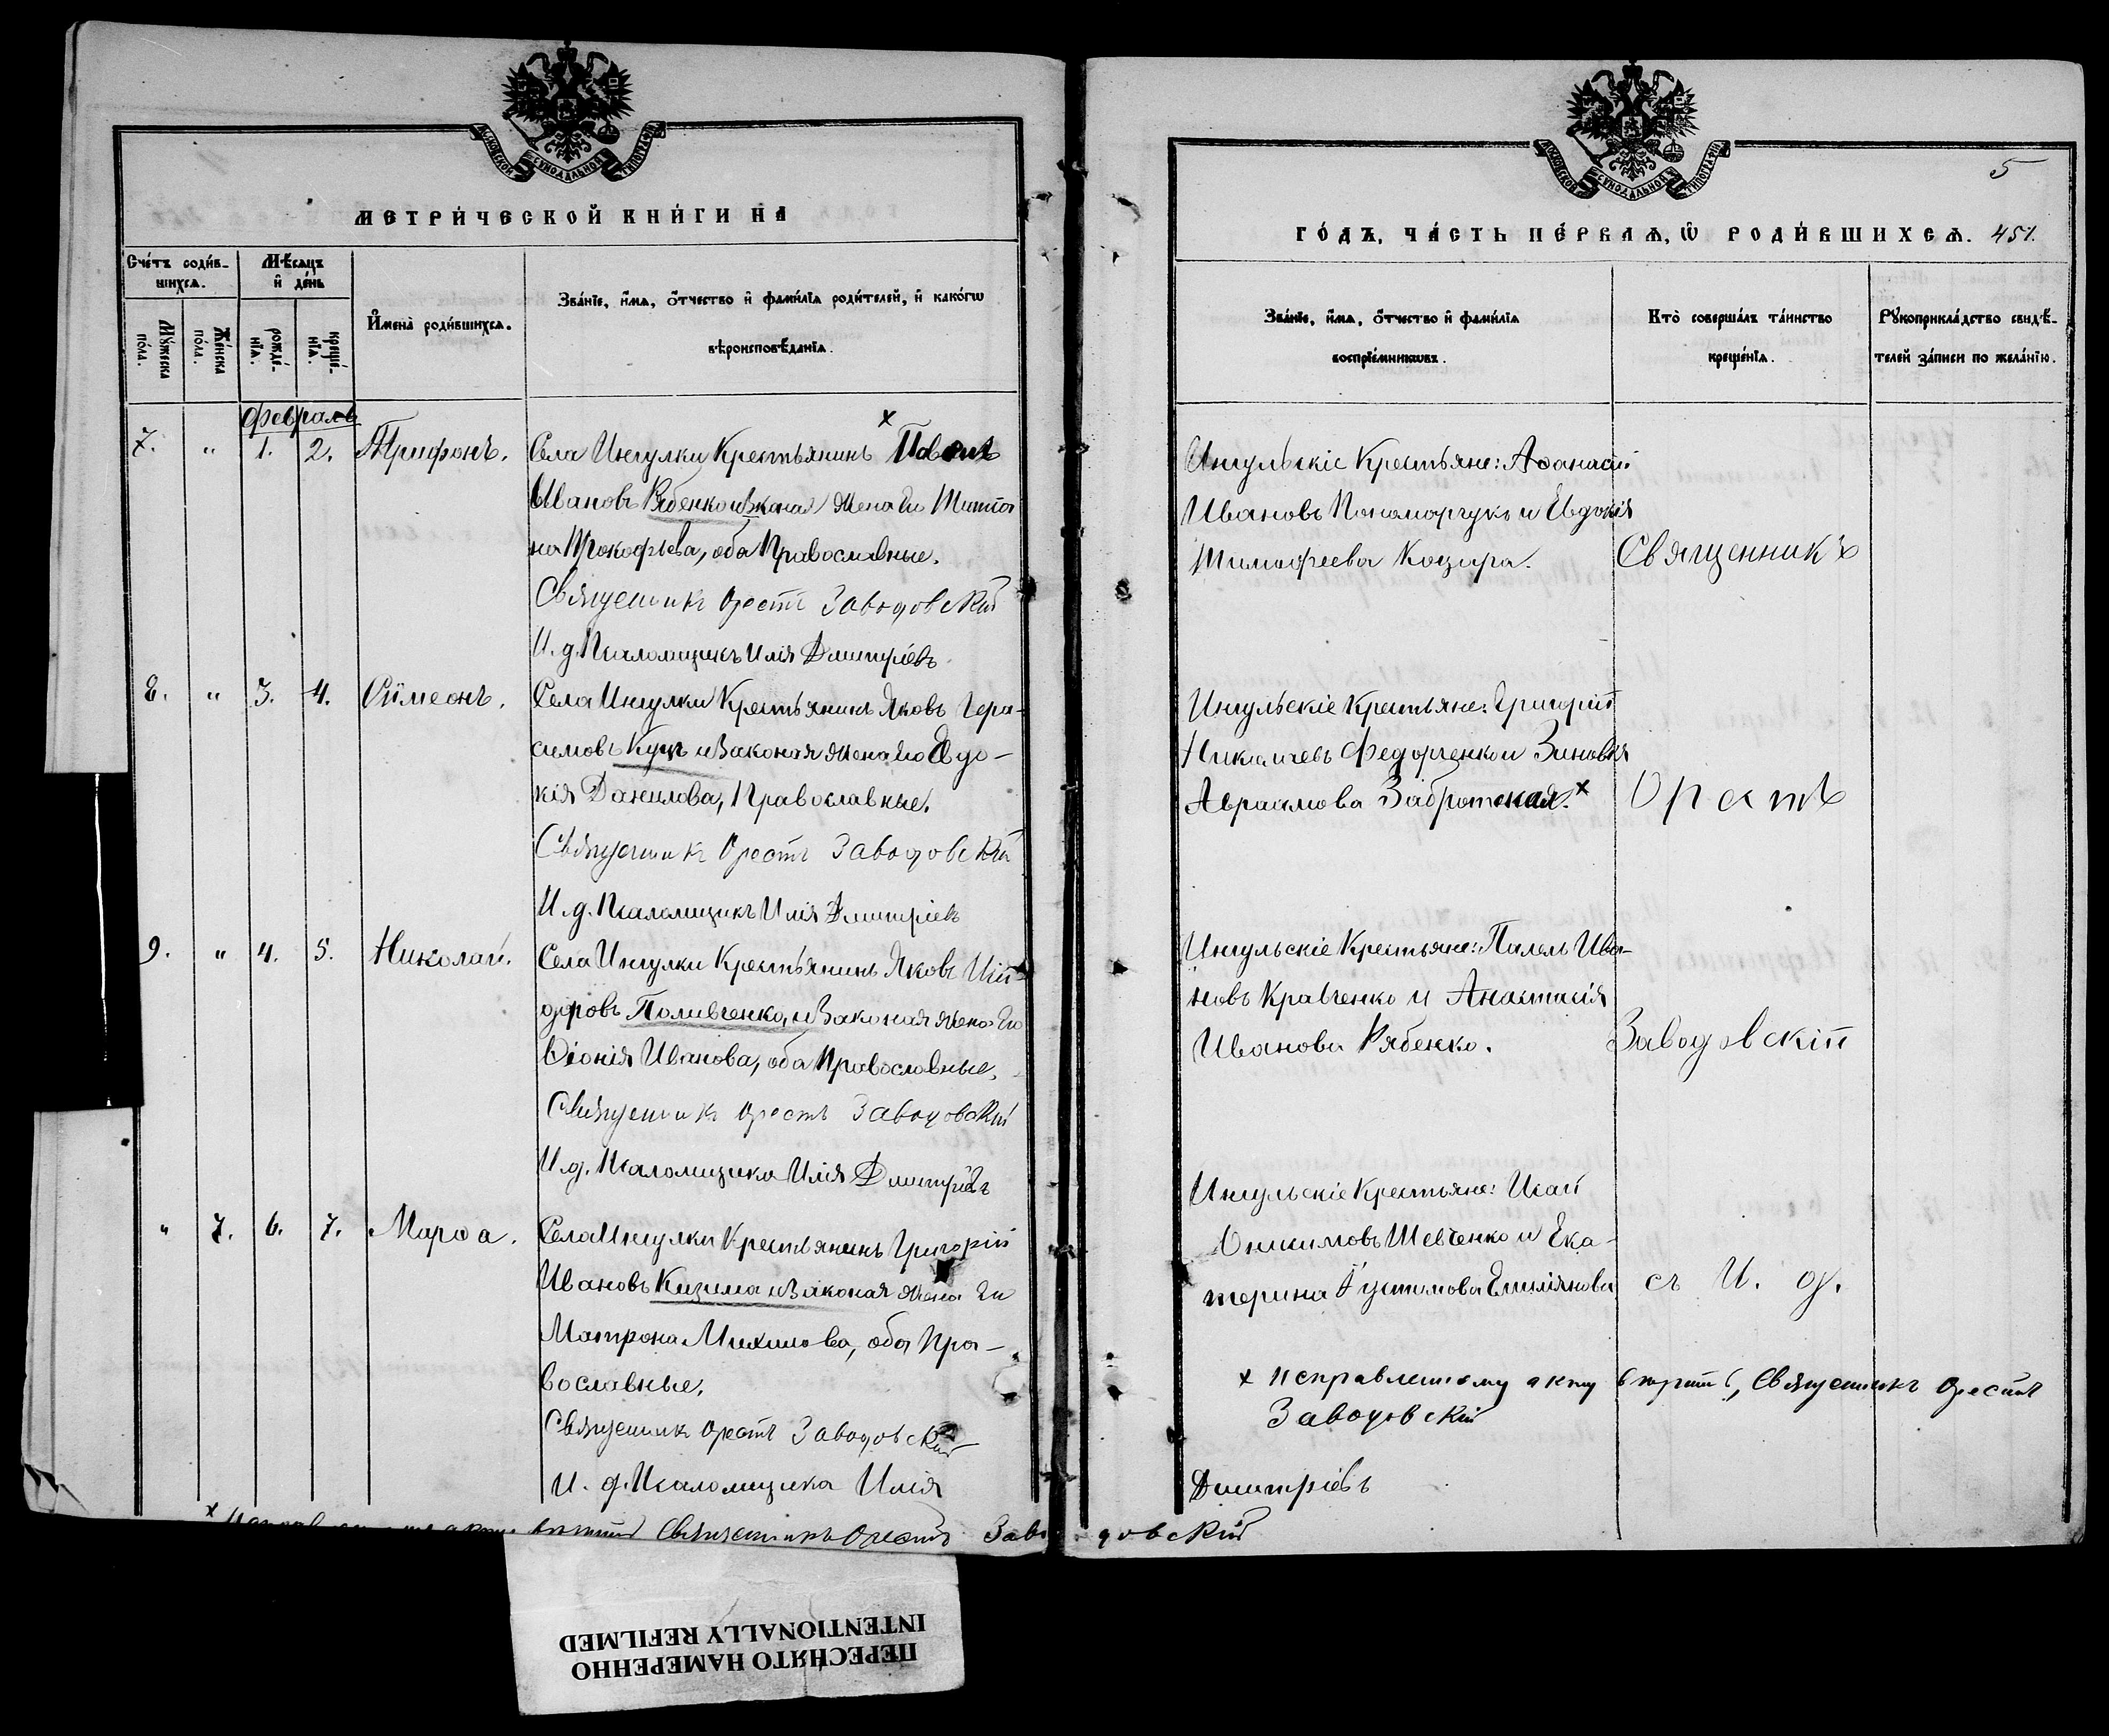 МОСКОВСКОЙ СѴНОДАЛЬНОЙ ТИПОГРАФІИ
МЕТРИ́ЧЕСКОЙ КНИ́ГИ НА
Сче́тъ роди́в-
шихся.
Мѣ́сяцъ
и҆ де́нь
Мꙋ́жеска
по́ла.
Же́нска
по́ла.
рожде́-
нїѧ.
креще́-
нїѧ.
И҆мена̀ роди́вшихсѧ.
Зва́нїе, и҆́мѧ, ѻ҆́тчество и҆ фами́лїѧ роди́телей, и҆ како́гѡ
вѣроисповѣ́данїѧ.
Февраль
7. " 1. 2. Трифонъ.
Села Ингулки Крестьянинъ × Павелъ
Ивановъ Рябенко и законая жена его
на Прокофьева, оба Православные.
Священникъ Орестъ Заводовскій
И. д. Псаломщикъ Илія Димитріевъ
8. " 3. 4. Симеонъ.
Села Ингулки Крестьянинъ Яковъ Гера-
симовъ Куцъ и Законая жена его Евдо-
кія Данилова, Православные.
Священникъ Орестъ Заводовскій
И. д. Псаломщикъ Илія Димитріевъ
9. " 4. 5. Николай.
Села Ингулки Крестьянинъ Яковъ
доровъ Поливченко, и Законая жена его
Ѳіонія Иванова, оба Православные.
Священникъ Орестъ Заводовскій
И. д. Псаломщика Илія Димитріевъ
" 7. 6. 7. Марѳа.
Села Ингулки Крестьянинъ Григорій
Ивановъ Кизима и Законая жена его
Матрона Михилова, оба Пра-
вославные.
Священникъ Орестъ Заводовскій
И. д. Псаломщика Илія Димитріевъ
× Священникъ Орестъ Заводовскій
МОСКОВСКОЙ СѴНОДАЛЬНОЙ ТИПОГРАФІИ
5
ГО́ДЪ, ЧА́СТЬ ПЕ́РВАѦ, Ѡ҆ РОДИ́ВШИХСѦ. 451.
Зва́нїе, и҆́мѧ, ѻ҆́тчество и҆ фами́лїѧ
воспрїе́мникѡвъ.
Кто̀ соверша́лъ та́инство
креще́нїѧ.
Рꙋкоприкла́дство свидѣ́-
телей за́писи по жела́нїю.
Ингульскіе Крестьяне: Аѳанасій
Ивановъ Пономарчукъ и Евдокія
Тимофеева Козира.
Священникъ
Ингульскіе Крестьяне: Григорій
Николаевъ Федорченко и Зиновія
Авраамова Забротская. ×
Орестъ
Ингульскіе Крестьяне: Павелъ Ива-
новъ Кравченко и Анастасія
Иванова Рябенко.
Заводовскій
Ингульскіе Крестьяне: Исай
Онисимовъ Шевченко и Ека-
терина Густимова Емиліянова
съ И. д.
× исправленному вѣрить, Священникъ Орестъ
Заводовскій
ПЕРЕСНЯТО НАМЕРЕННО
INTENTIONALLY REFILMED